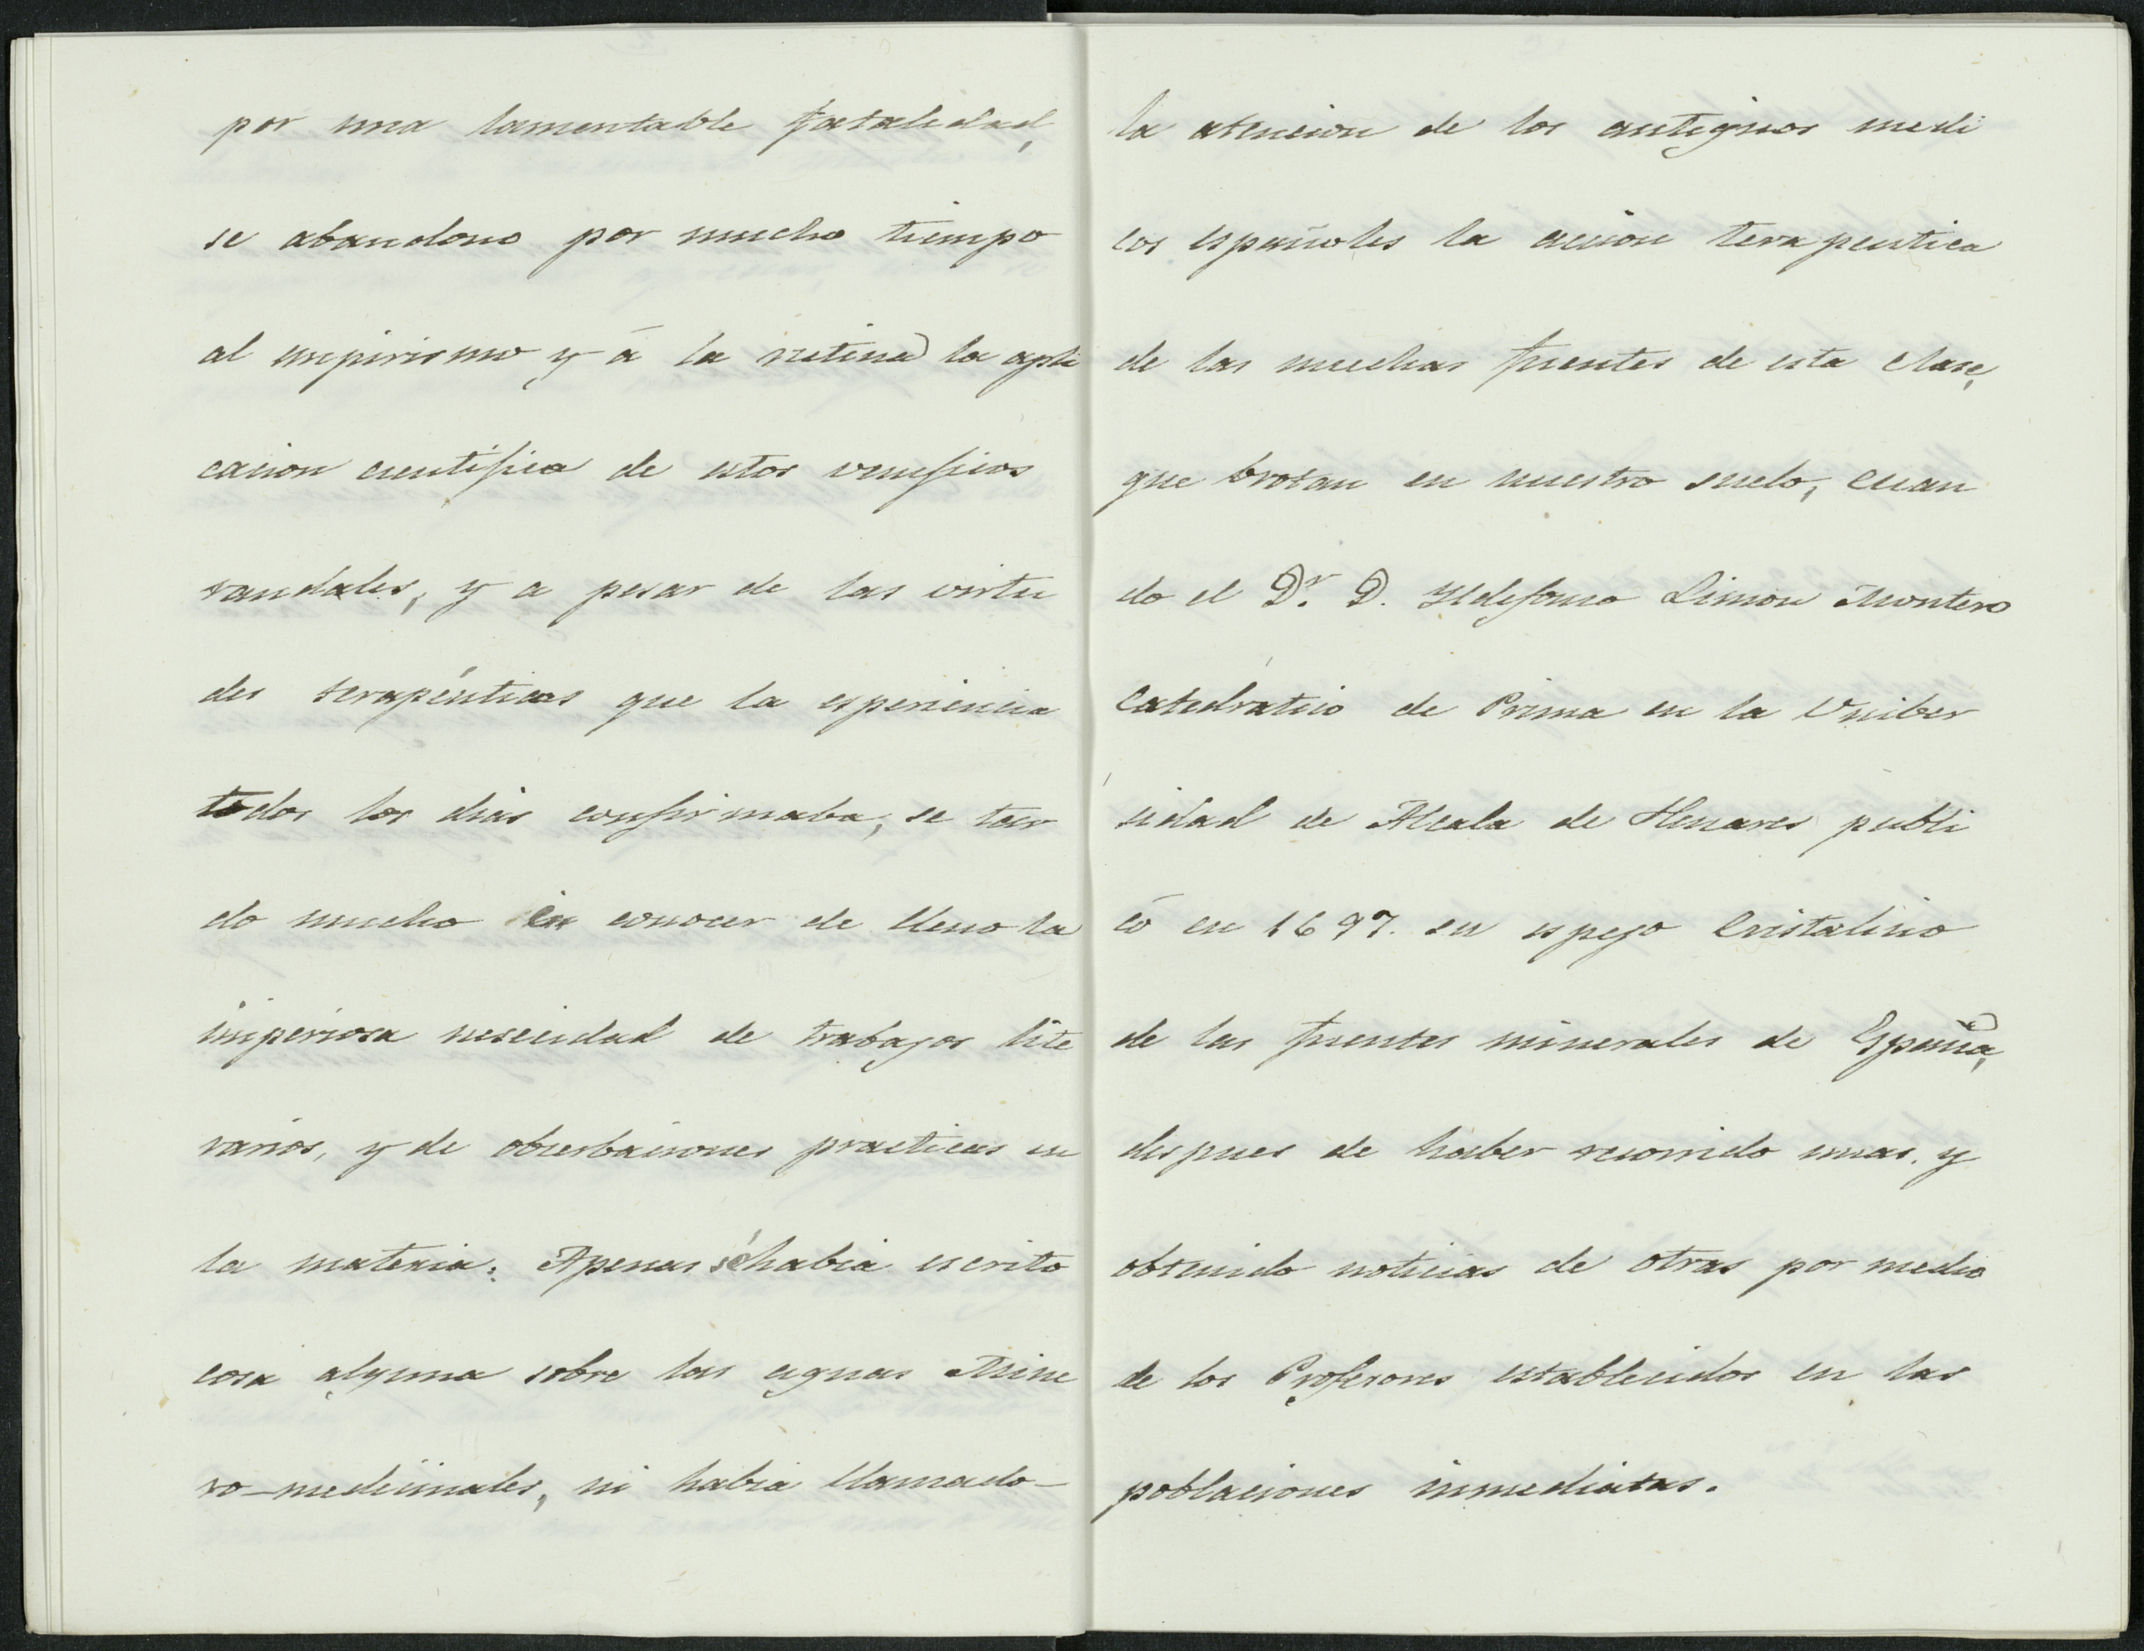 por una lamentable fatalidad,
se abandono por mucho tiempo
al empirismo y á la rutina la apli
cacion cientifica de estos veneficos
raudales, y a pesar de las virtu
des terapéuticas que la esperiencia
todos los dias confirmaba, se tar
do mucho en conocer de lleno la
imperiosa nesecidad de trabajos lite
rarios, y de obserbaciones practicas en
la materia: Apenas se habia escrito
cosa alguna sobre las aguas Mine
ro-medicinales, ni habia llamado-
la atencion de los antiguos medi
cos españoles la accion terapeutica
de las muchas fuentes de esta clase,
que brotan en nuestro suelo, cuan
do el Dr. D. Yldefonso Limon Montero
Catedratico de Prima en la Univer
sidad de Alcala de Henares publi
có en 1697. su espejo Cristalino
de las fuentes minerales de España,
despues de haber recorrido unas, y
obtenido noticias de otras por medio
de los Profesores establecidos en las
poblaciones inmediatas.